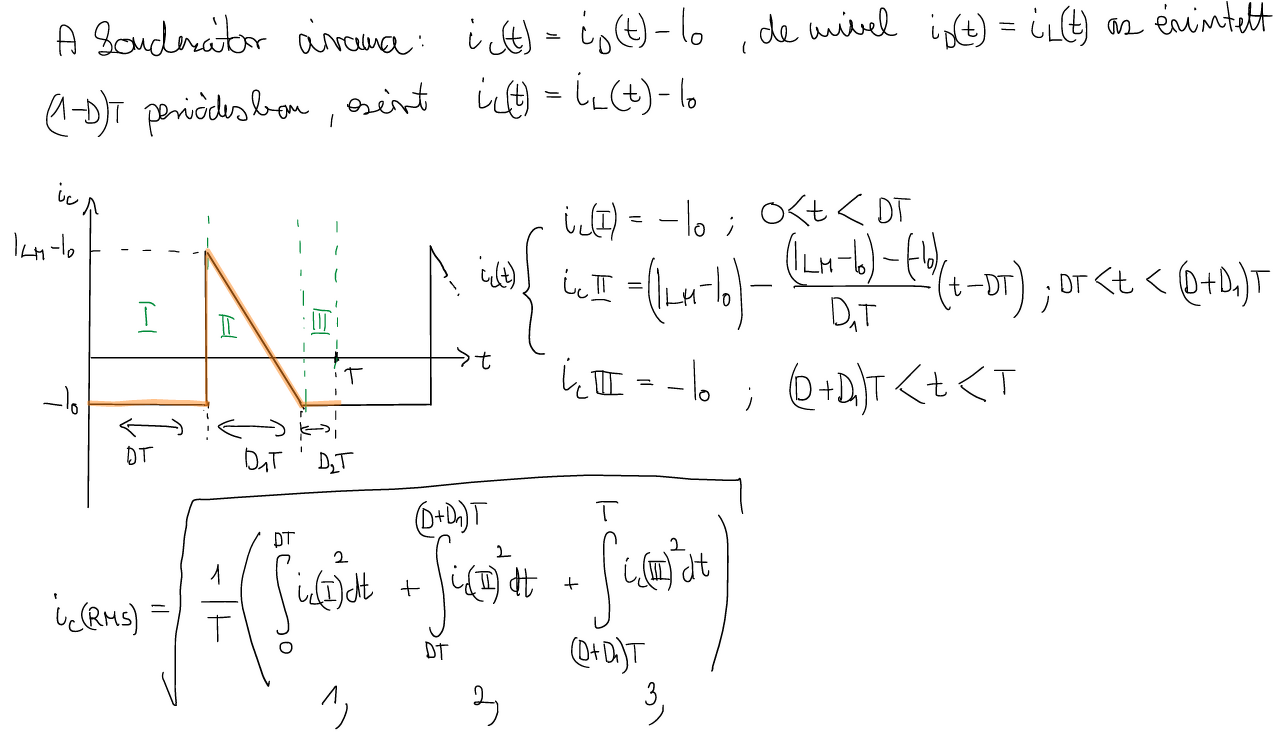 A kondenzátor árama: i_c(t) = i_D(t) - I_0 , de mivel i_D(t) = i_L(t) az érintett
(1-D)T periódusban, ezért i_c(t) = i_L(t) - I_0
i_c
I_LM - I_0
I
II
III
t
T
-I_0
DT
D_1T
D_2T
i_c(t) {
i_c(I) = -I_0 ; 0 < t < DT
i_c II = (I_LM - I_0) - ((I_LM - I_0) - (-I_0))/(D_1T) (t - DT) ; DT < t < (D+D_1)T
i_c III = -I_0 ; (D+D_1)T < t < T
i_c(RMS) = √(1/T (∫_0^DT i_c(I)^2 dt + ∫_DT^(D+D_1)T i_c(II)^2 dt + ∫_(D+D_1)T^T i_c(III)^2 dt))
1, 2, 3,